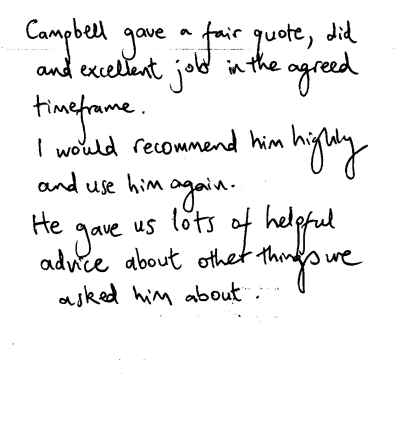 Campbell gave a fair quote, did
and excellent job in the agreed
timeframe.
I would recommend him highly
and use him again.
He gave us lots of helpful
advice about other things we
asked him about.